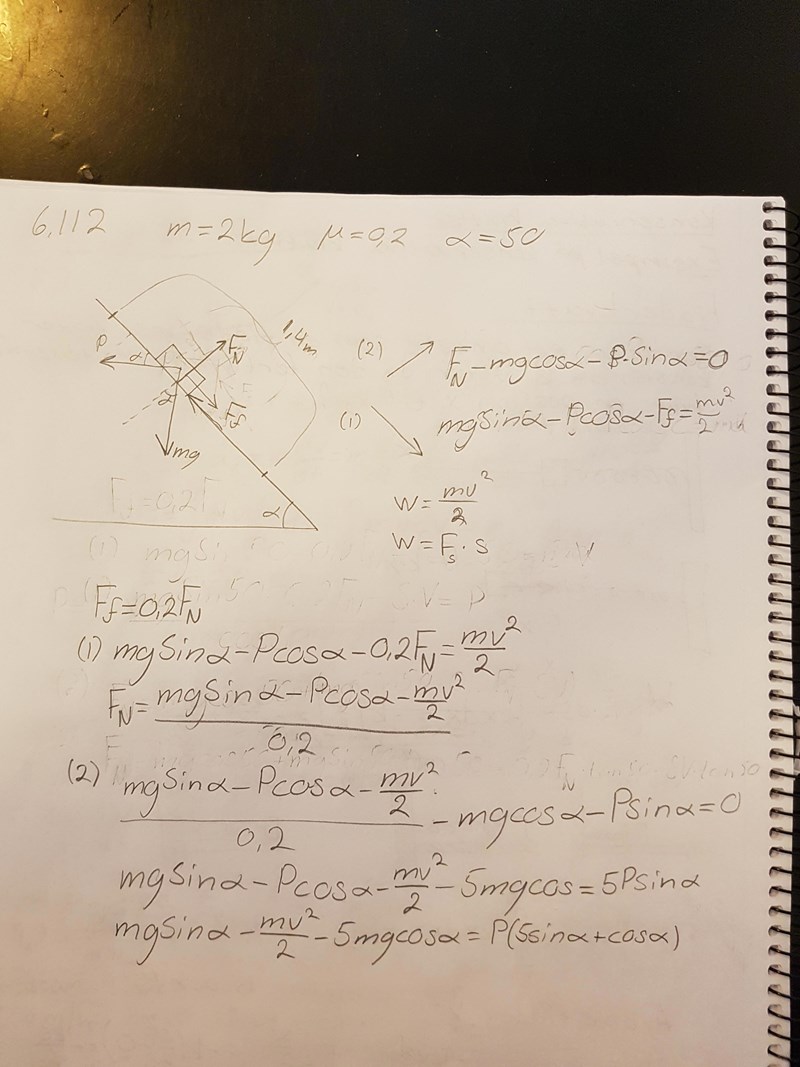 6,112 m=2kg μ=0,2 α=50
P α F_N 1,4m
α F_f
mg
α
(2) F_N - mgcosα - P·sinα = 0
(1) mgsinα - Pcosα - Ff = mv²/2
W = mv²/2
W = F_s · s
Ff = 0,2F_N
(1) mgsinα - Pcosα - 0,2F_N = mv²/2
F_N = (mgsinα - Pcosα - mv²/2) / 0,2
(2) (mgsinα - Pcosα - mv²/2) / 0,2 - mgcosα - Psinα = 0
mgsinα - Pcosα - mv²/2 - 5mgcos = 5Psinα
mgsinα - mv²/2 - 5mgcosα = P(5sinα + cosα)